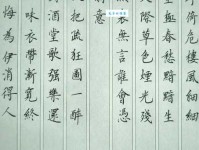 倚危樓風細細
春愁黯黯生
際草色煙光殘
無言誰會憑
意
把疏狂圖一醉
酒當歌強樂還
味衣帶漸寬終
悔為伊消得人